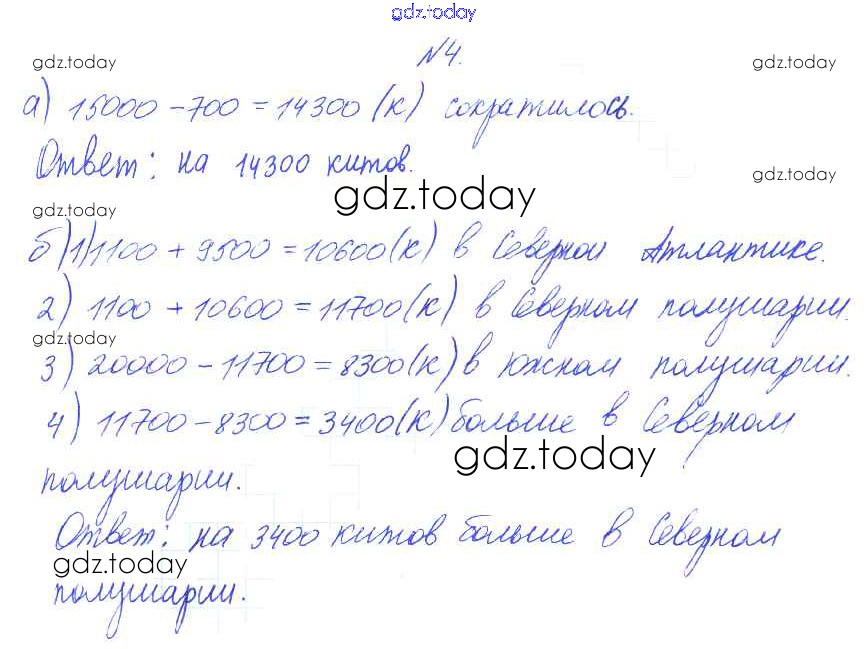 gdz.today
№4.
gdz.today gdz.today
а) 15000 - 700 = 14300 (к) сократилось.
Ответ: на 14300 китов.
gdz.today gdz.today
gdz.today
б) 1) 1100 + 9500 = 10600 (к) в Северной Атлантике.
2) 1100 + 10600 = 11700 (к) в Северном полушарии.
gdz.today
3) 20000 - 11700 = 8300 (к) в южном полушарии.
4) 11700 - 8300 = 3400 (к) больше в Северном
gdz.today
полушарии.
Ответ: на 3400 китов больше в Северном
gdz.today
полушарии.